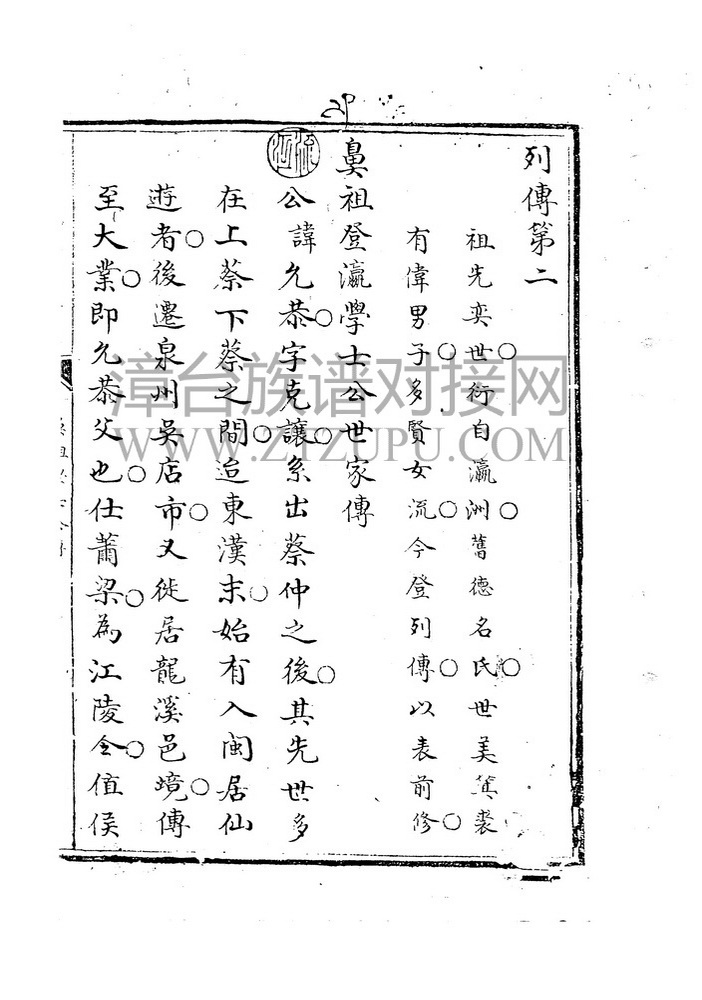 列傳第二
祖先奕世○衍自瀛洲○舊德名氏○世美箕裘
有偉男子○多賢女流○今登列傳○以表前修○
鼻祖登瀛學士公世家傳
公諱允恭○字克讓○系出蔡仲之後○其先世多
在上蔡下蔡之間○迨東漢末○始有入閩居仙
遊者○後遷泉州吳店市○又徙居龍溪邑境○傳
至大業○即允恭父也○仕蕭梁○為江陵令○值侯
漳台族谱对接网
WWW.ZTZUPU.COM